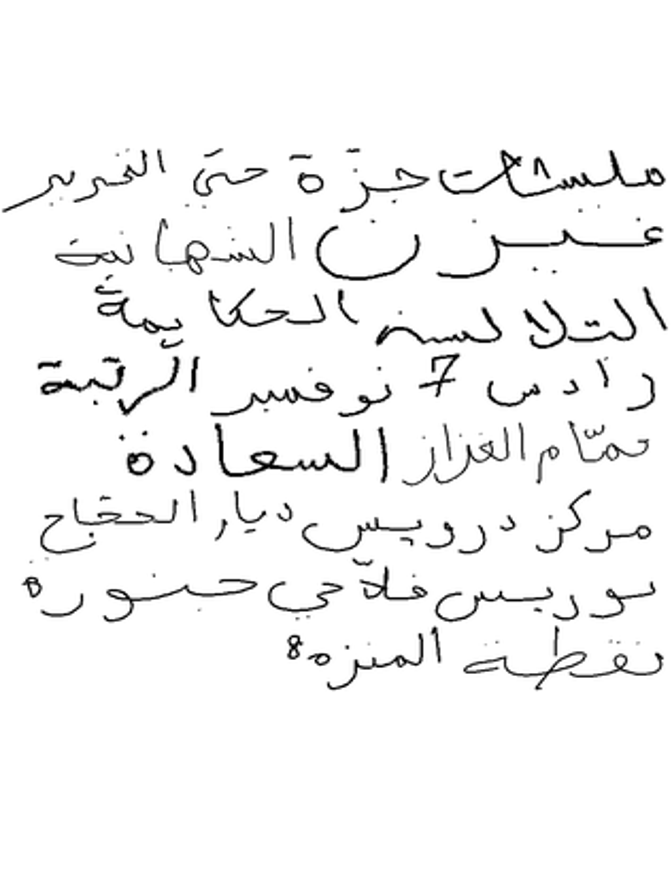 ملسشات جزّة حتى التحرير
غنيزن الشهانية
التلالسة الحكايمة
رادس 7 نوفمبر الرتبة
حمّام الغزاز السعادة
مركز درويس ديار الحجّاج
بوريس فلاّحي حبنور B
نقطة المنزه 8